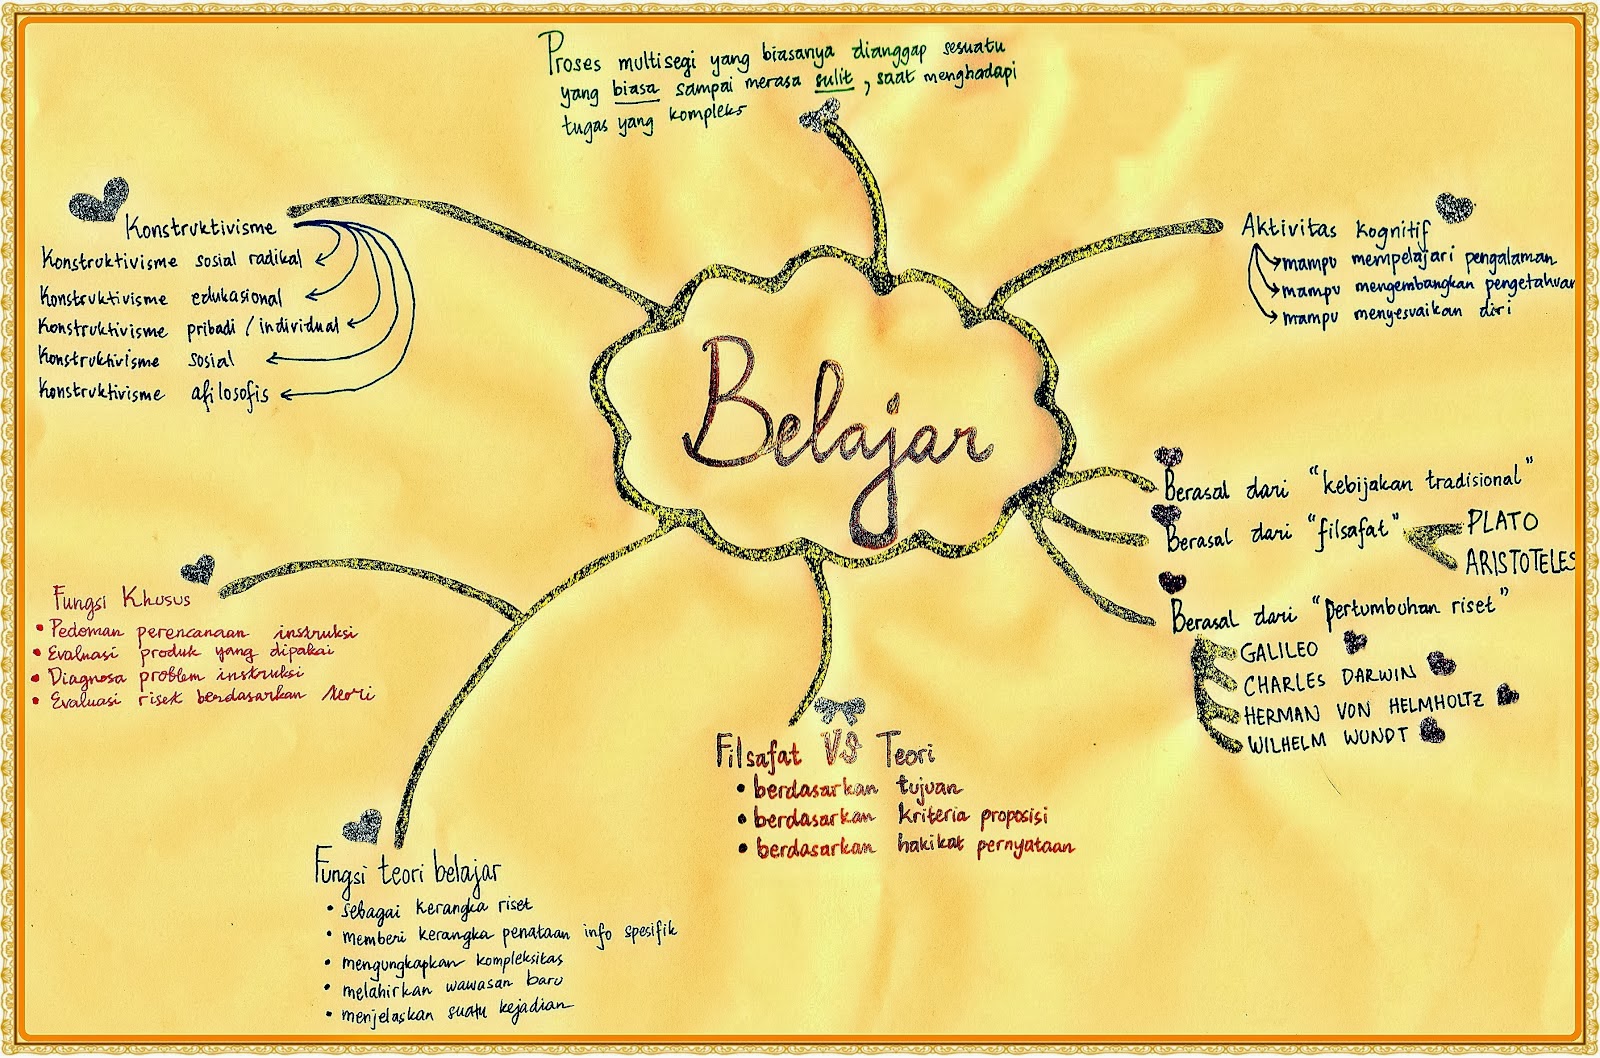 Proses multisegi yang biasanya dianggap sesuatu
yang biasa sampai merasa sulit, saat menghadapi
tugas yang kompleks
Konstruktivisme
Konstruktivisme sosial radikal
Konstruktivisme edukasional
Konstruktivisme pribadi / individual
Konstruktivisme sosial
Konstruktivisme afilosofis
Aktivitas kognitif
mampu mempelajari pengalaman
mampu mengembangkan pengetahuan
mampu menyesuaikan diri
Belajar
Berasal dari "kebijakan tradisional"
Berasal dari "filsafat"
PLATO
ARISTOTELES
Berasal dari "pertumbuhan riset"
GALILEO
CHARLES DARWIN
HERMAN VON HELMHOLTZ
WILHELM WUNDT
Fungsi Khusus
• Pedoman perencanaan instruksi
• Evaluasi produk yang dipakai
• Diagnosa problem instruksi
• Evaluasi riset berdasarkan teori
Filsafat VS Teori
• berdasarkan tujuan
• berdasarkan kriteria proposisi
• berdasarkan hakikat pernyataan
Fungsi teori belajar
• sebagai kerangka riset
• memberi kerangka penataan info spesifik
• mengungkapkan kompleksitas
• melahirkan wawasan baru
• menjelaskan suatu kejadian